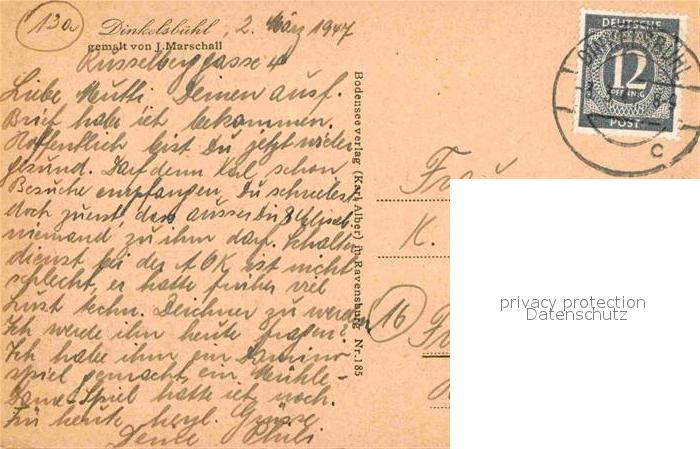 13a
Dinkelsbühl, 2. März 1947
gemalt von J. Marschall
Russelberggasse 4
Liebe Mutti! Deinen ausf.
Brief habe ich bekommen.
Hoffentlich bist Du jetzt wieder
gesund. Darf denn Karl schon
Besuche empfangen, Du schreibst
doch zuerst, dass ausser Dir & Elisab.
niemand zu ihm darf. Schalter
dienst bei der AOK ist nicht
schlecht, er hatte früher viel
Lust techn. Zeichner zu werden
Ich werde ihn heute fragen?
Ich habe ihm ein Domino-
spiel gemacht, ein Mühle-
Dame-Spiel hatte ich noch.
Für heute herzl. Grüsse
Deine
Bodenseeverlag (Karl Alber) in Ravensburg Nr. 185
DEUTSCHE
12
PFENNIG
POST
DINKELSBÜHL
c
Frau
K.
16
privacy protection
Datenschutz